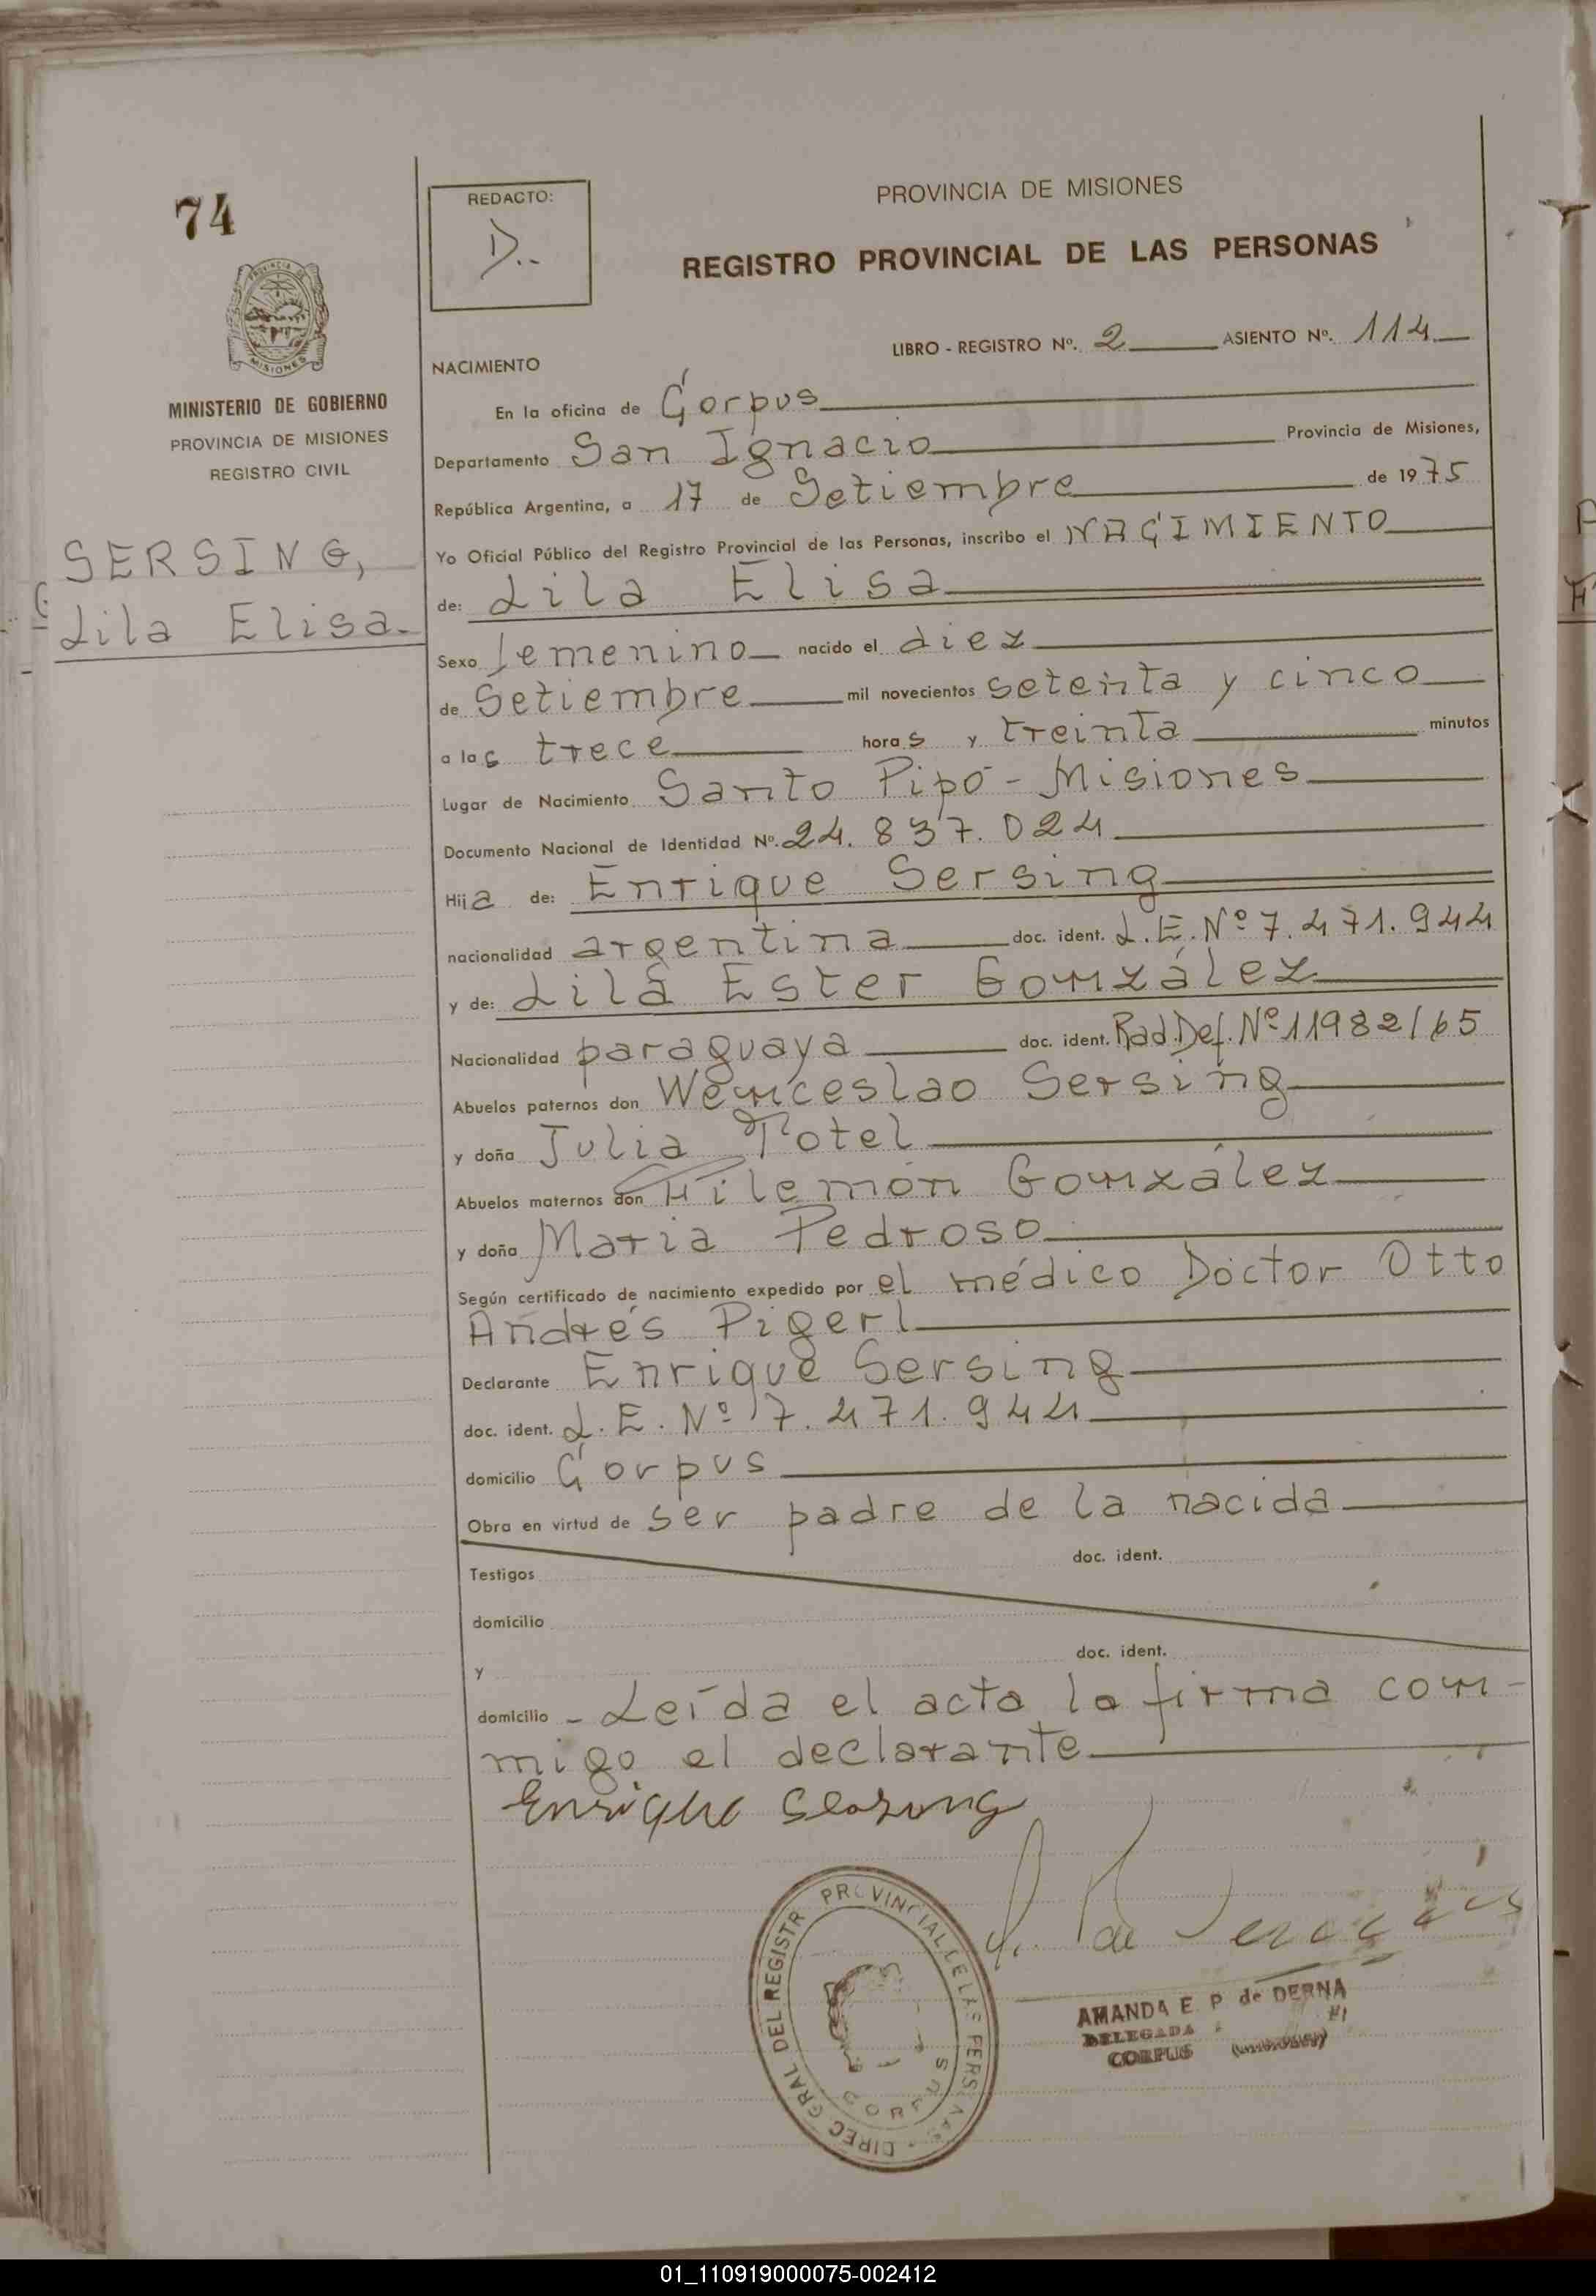 74
REDACTO:
D..
PROVINCIA DE MISIONES
REGISTRO PROVINCIAL DE LAS PERSONAS
MISIONES
MINISTERIO DE GOBIERNO
PROVINCIA DE MISIONES
REGISTRO CIVIL
SERSING,
Lila Elisa.
LIBRO - REGISTRO Nº. 2 ASIENTO Nº. 114
NACIMIENTO
En la oficina de Corpus
Departamento San Ignacio Provincia de Misiones,
República Argentina, a 17 de Setiembre de 1975
Yo Oficial Público del Registro Provincial de las Personas, inscribo el NACIMIENTO
de: Lila Elisa
Sexo femenino nacido el diez
de Setiembre mil novecientos setenta y cinco
a las trece horas y treinta minutos
Lugar de Nacimiento Santo Pipó - Misiones
Documento Nacional de Identidad Nº. 24.837.024
Hija de: Enrique Sersing
nacionalidad argentina doc. ident. L.E. Nº 7.471.944
y de: Lila Ester González
Nacionalidad paraguaya doc. ident. Rad. Def. Nº 11982/65
Abuelos paternos don Wenceslao Sersing
y doña Julia Potel
Abuelos maternos don Filemón González
y doña María Pedroso
Según certificado de nacimiento expedido por el médico Doctor Otto
Andrés Pigerl
Declarante Enrique Sersing
doc. ident. L.E. Nº 7.471.944
domicilio Corpus
Obra en virtud de ser padre de la nacida
doc. ident.
Testigos
domicilio
doc. ident.
y
domicilio - Leída el acta la firma con-
migo el declarante
Enrique Sersing
DIREC GRAL DEL REGISTR PROVINCIAL DE LAS PERSONAS
CORPUS
AMANDA E. P. de DERNA
DELEGADA
CORPUS
01_110919000075-002412